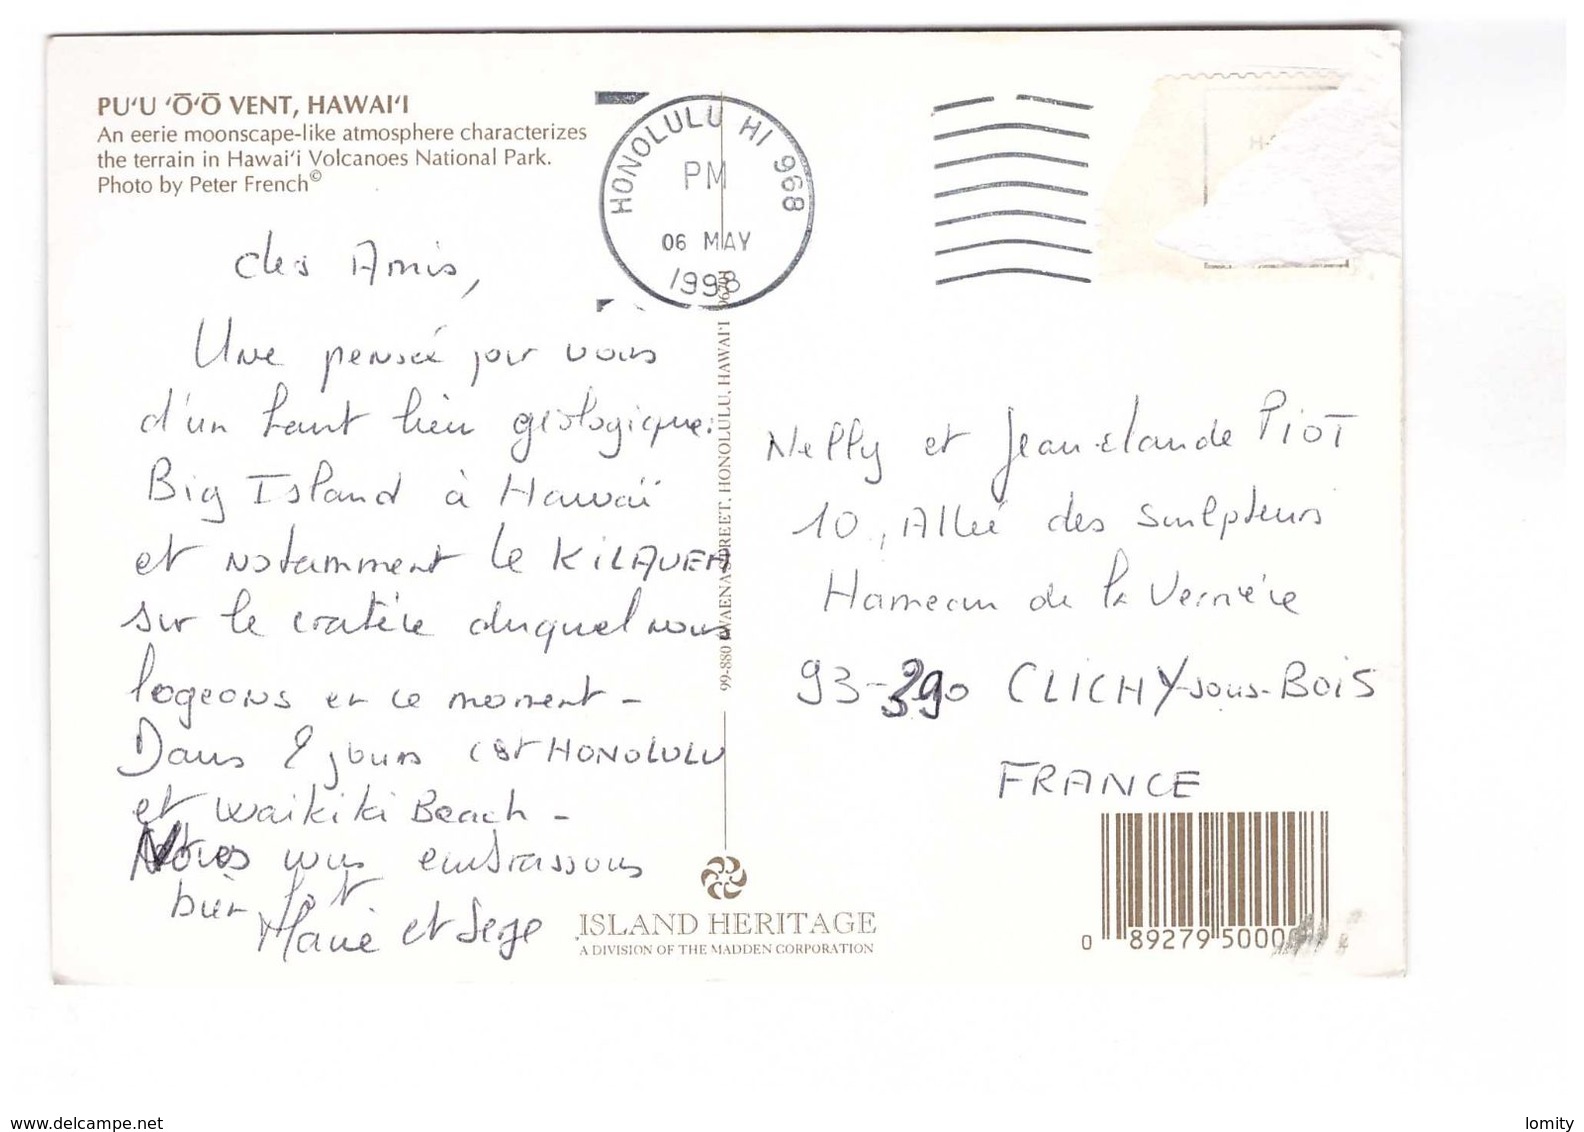 PU'U 'Ō'Ō VENT, HAWAI'I
An eerie moonscape-like atmosphere characterizes
the terrain in Hawai'i Volcanoes National Park.
Photo by Peter French©
HONOLULU HI 968
PM
06 MAY
1998
Amis,
Une pensée pour vous
d'un haut lieu géologique:
Big Island à Hawaï
et notamment le KILAUEA
sur le cratère duquel nous
logeons en ce moment -
Dans 2 jours c'est HONOLULU
et Waikiki Beach -
Nous vous embrassons
bien fort
Marie et Serge
99-880 IWAENA STREET, HONOLULU, HAWAI'I 96701
Nelly et Jean-Claude PIOT
10, Allée des Sculpteurs
Hameau de la Verrière
93-390 CLICHY-sous-BOIS
FRANCE
ISLAND HERITAGE
A DIVISION OF THE MADDEN CORPORATION
0 89279 5000
www.delcampe.net
lomity